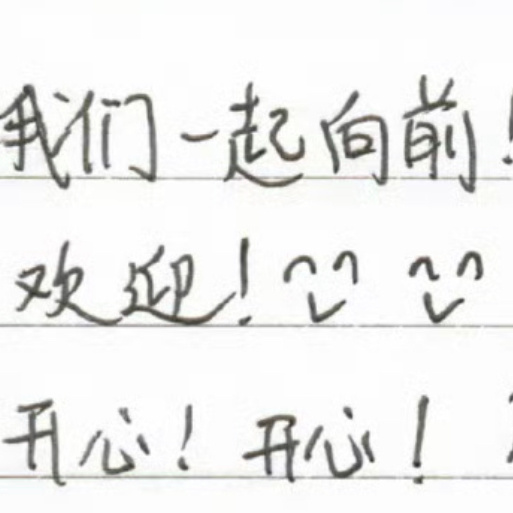 我们一起向前!
欢迎!
开心! 开心!